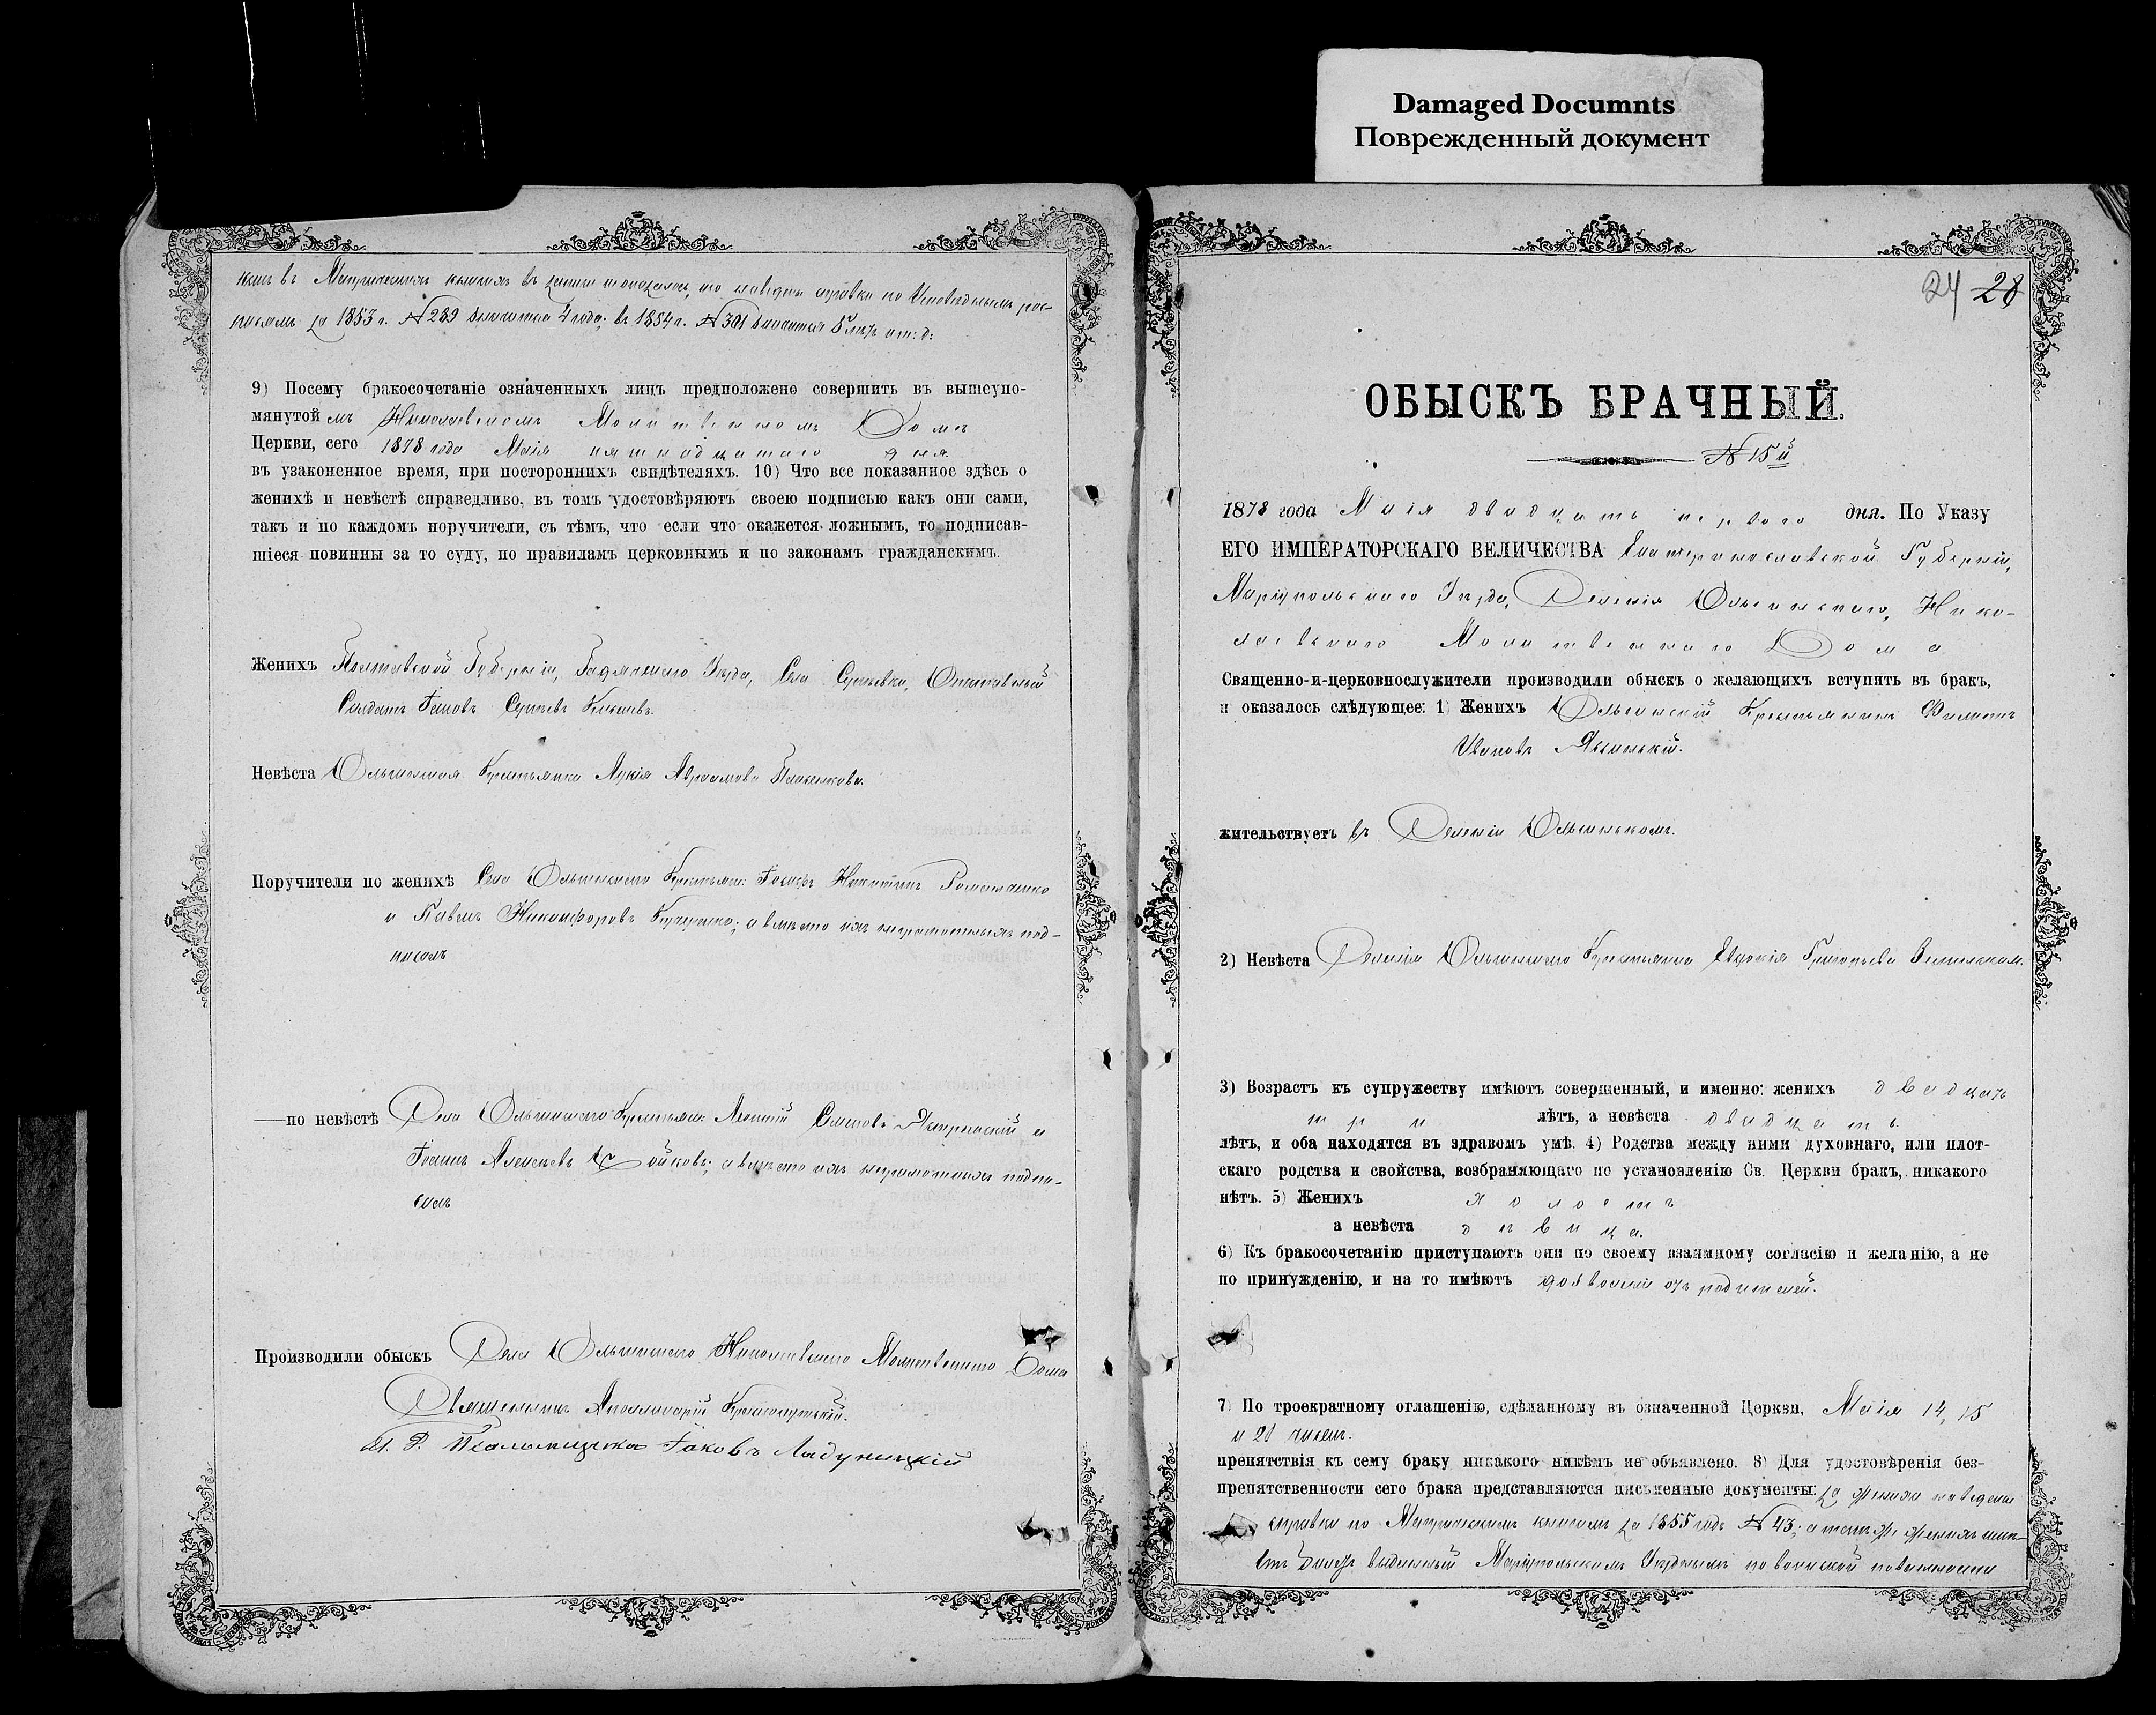 Damaged Documnts
Поврежденный документ
за 1853 г. № 289 4 года; въ 1854 г. № 301 5 лѣтъ и т: д:
9) Посему бракосочетаніе означенныхъ лицъ предположено совершить въ вышеупо-
мянутой мъ Николаевскомъ Молитвенномъ Домѣ
Церкви, сего 1878 года Маія пятнадцатаго дня.
въ узаконенное время, при постороннихъ свидѣтеляхъ. 10) Что все показанное здѣсь о
женихѣ и невѣстѣ справедливо, въ томъ удостовѣряютъ своею подписью какъ они сами,
такъ и по каждомъ поручители, съ тѣмъ, что если что окажется ложнымъ, то подписав-
шіеся повинны за то суду, по правиламъ церковнымъ и по законамъ гражданскимъ.
Женихъ Полтавской Губерніи, Гадячскаго Уѣзда, Села Отставный
Солдатъ
Невѣста Ольгинская Крестьянка Лукія Авраамова
Поручители по женихѣ Села Ольгинскаго Крестьян: Іосифъ Никитинъ Романченко
и Павелъ Никифоровъ а вмѣсто ихъ неграмотныхъ под-
писалъ
—по невѣстѣ Села Ольгинскаго Крестьян: и
Іоаннъ Алексѣевъ а вмѣсто ихъ неграмотныхъ подпи-
салъ
Производили обыскъ Села Ольгинскаго Николаевскаго Молитвеннаго Дома
Священникъ Аполлинарій
И. д. Псаломщика Іаковъ Ладунидкій
24 28
ОБЫСКЪ БРАЧНЫЙ.
№ 15й
1878 года Маія двадцать перваго дня. По Указу
ЕГО ИМПЕРАТОРСКАГО ВЕЛИЧЕСТВА Екатеринославской Губерніи,
Маріупольскаго Уѣзда, Селенія Ольгинскаго, Нико-
лаевскаго Молитвеннаго Дома
Священно-и-церковнослужители производили обыскъ о желающихъ вступить въ бракъ,
и оказалось слѣдующее: 1) Женихъ Ольгинскій Крестьянинъ Филиппъ
Ивановъ
жительствуетъ въ Селеніи Ольгинскомъ.
2) Невѣста Селенія Ольгинскаго Крестьянка Евдокія Григорьева
3) Возрастъ къ супружеству имѣютъ совершенный, и именно: женихъ двадцать
три лѣтъ, а невѣста двадцать
лѣтъ, и оба находятся въ здравомъ умѣ. 4) Родства между ними духовнаго, или плот-
скаго родства и свойства, возбраняющаго по установленію Св. Церкви бракъ, никакого
нѣтъ. 5) Женихъ холостъ
а невѣста дѣвица.
6) Къ бракосочетанію приступаютъ они по своему взаимному согласію и желанію, а не
по принужденію, и на то имѣютъ дозволеніе отъ родителей.
7) По троекратному оглашенію, сдѣланному въ означенной Церкви, Маія 14, 15
и 21 чиселъ.
препятствія къ сему браку никакого никѣмъ не объявлено. 8) Для удостовѣренія без-
препятственности сего брака представляются письменные документы: наведена
справка по Метрическимъ книгамъ за 1855 годъ № 43; а также женихъ имѣ-
етъ выданный Маріупольскимъ Уѣзднымъ по воинской повинности